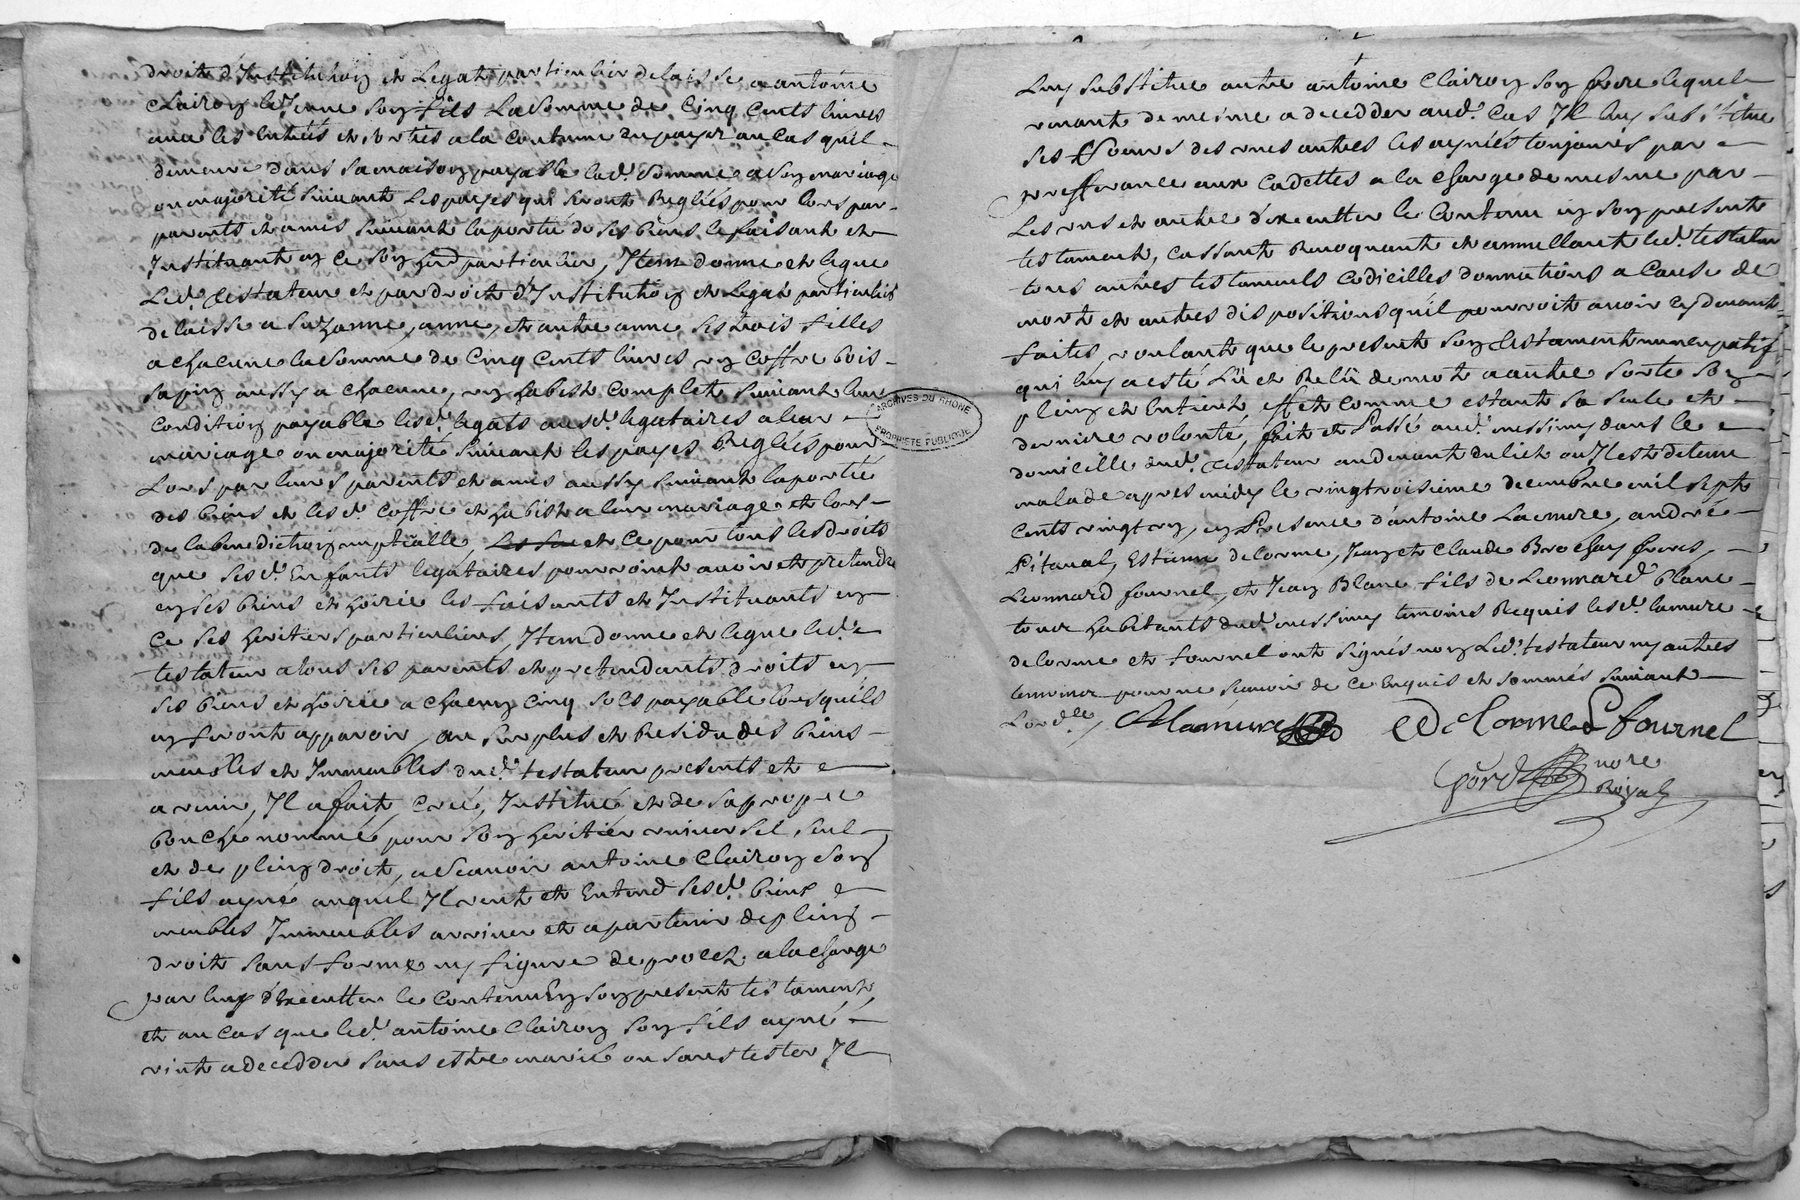 droit d'Institution et Legat particulier delaisse a antoine
Clairon le Jeune son fils La Somme de Cinq Cents livres
avec les interets et sorties a la coutume du payer au cas quil
demeure dans sa maison payable lad. Somme a son mariage
ou majorité suivant les payes qui seront Regléés pour lors par
parents et amis suivant la porteé de ses biens le faisant et
Instituant en ce son herd particulier, Item donne et legue
Led. testateur et par droit d'Institution et Legat particulier
delaisse a Suzanne, anne, et autre anne ses trois filles
a chacune la somme de Cinq Cents livres un coffre bois
sapin aussy a chacune, un habist complet suivant leur
Condition payable lesd. legats auxd. legataires a leur
mariage ou majorité suivant les payes Regléés pour
Lors par leurs parents et amis aussy suivant la porteé
des biens et lesd. Coffre et habist a leur mariage et lors
de la benediction nuptialle, et ce pour tous les droits
que sesd. Enfants legataires pourroint avoir et pretendre
en ses biens et hoirie les faisants et Instituants en
ce ses heritiers particuliers, Item donne et legue led.
testateur a tous ses parents et pretendants droits en
ses biens et hoirie a chacun cinq sols payable lorsquils
en feront apparoir, au surplus et Residu des biens
meubles et Immeubles dud. testateur presents et
avenir, Il a fait, creé, Institué et de sa propre
bouche nommé pour son heritier universel, seul
et de plein droit, a scavoir antoine Clairon son
fils ayné auquel Il veut et Entend sesd. biens
meubles Immeubles arriver et apartenir de plein
droit sans forme ny figure de procez, a la charge
par luy d'executter le contenu En son present testament
et au cas que led. antoine Clairon son fils ayné
vint a decedder sans estre marié ou sans tester Il
Luy substitue autre antoine Clairon son frere lequel
venant de méme a decedder aud. cas Il luy substitue
ses soeurs des unes autres les aynéés toujours par
prefferance aux Cadettes a la charge de mesme par
Les uns et autre d'executter le Contenu en son present
testament, cassant Revoquant et annullant led. testateur
tous autres testaments Codicilles donnations a Cause de
mort et autres dispositions quil pourroit avoir cy devant
faites, voulant que le present son testament nuncupatif
qui luy a esté Lü et Relü de mot a autre sorte son
plein et Entient effet comme estant sa seule et
derniere volonté, fait et Passé aud. messimy dans le
domicille dud. testateur au devant du lict ou Il est detenu
malade apres midy le vingtroisieme decembre mil sept
Cents vingt un, en Presence d'antoine Lamure, andré
Pitaval, Estienne delorme, Jean et Claude Brochay freres,
Leonnard fournel, et Jean Blanc fils de Leonnard blanc
tous habitants dud. messimy temoins Requis lesd. lamure
delorme et fournel ont signés non led. testateur ny autres
temoins pour ne scavoir de ce Enquis et sommés suivant
Lord.ce,
ALamure DeLorme L fournel
nore
Royal
ARCHIVES DU RHONE
PROPRIETE PUBLIQUE